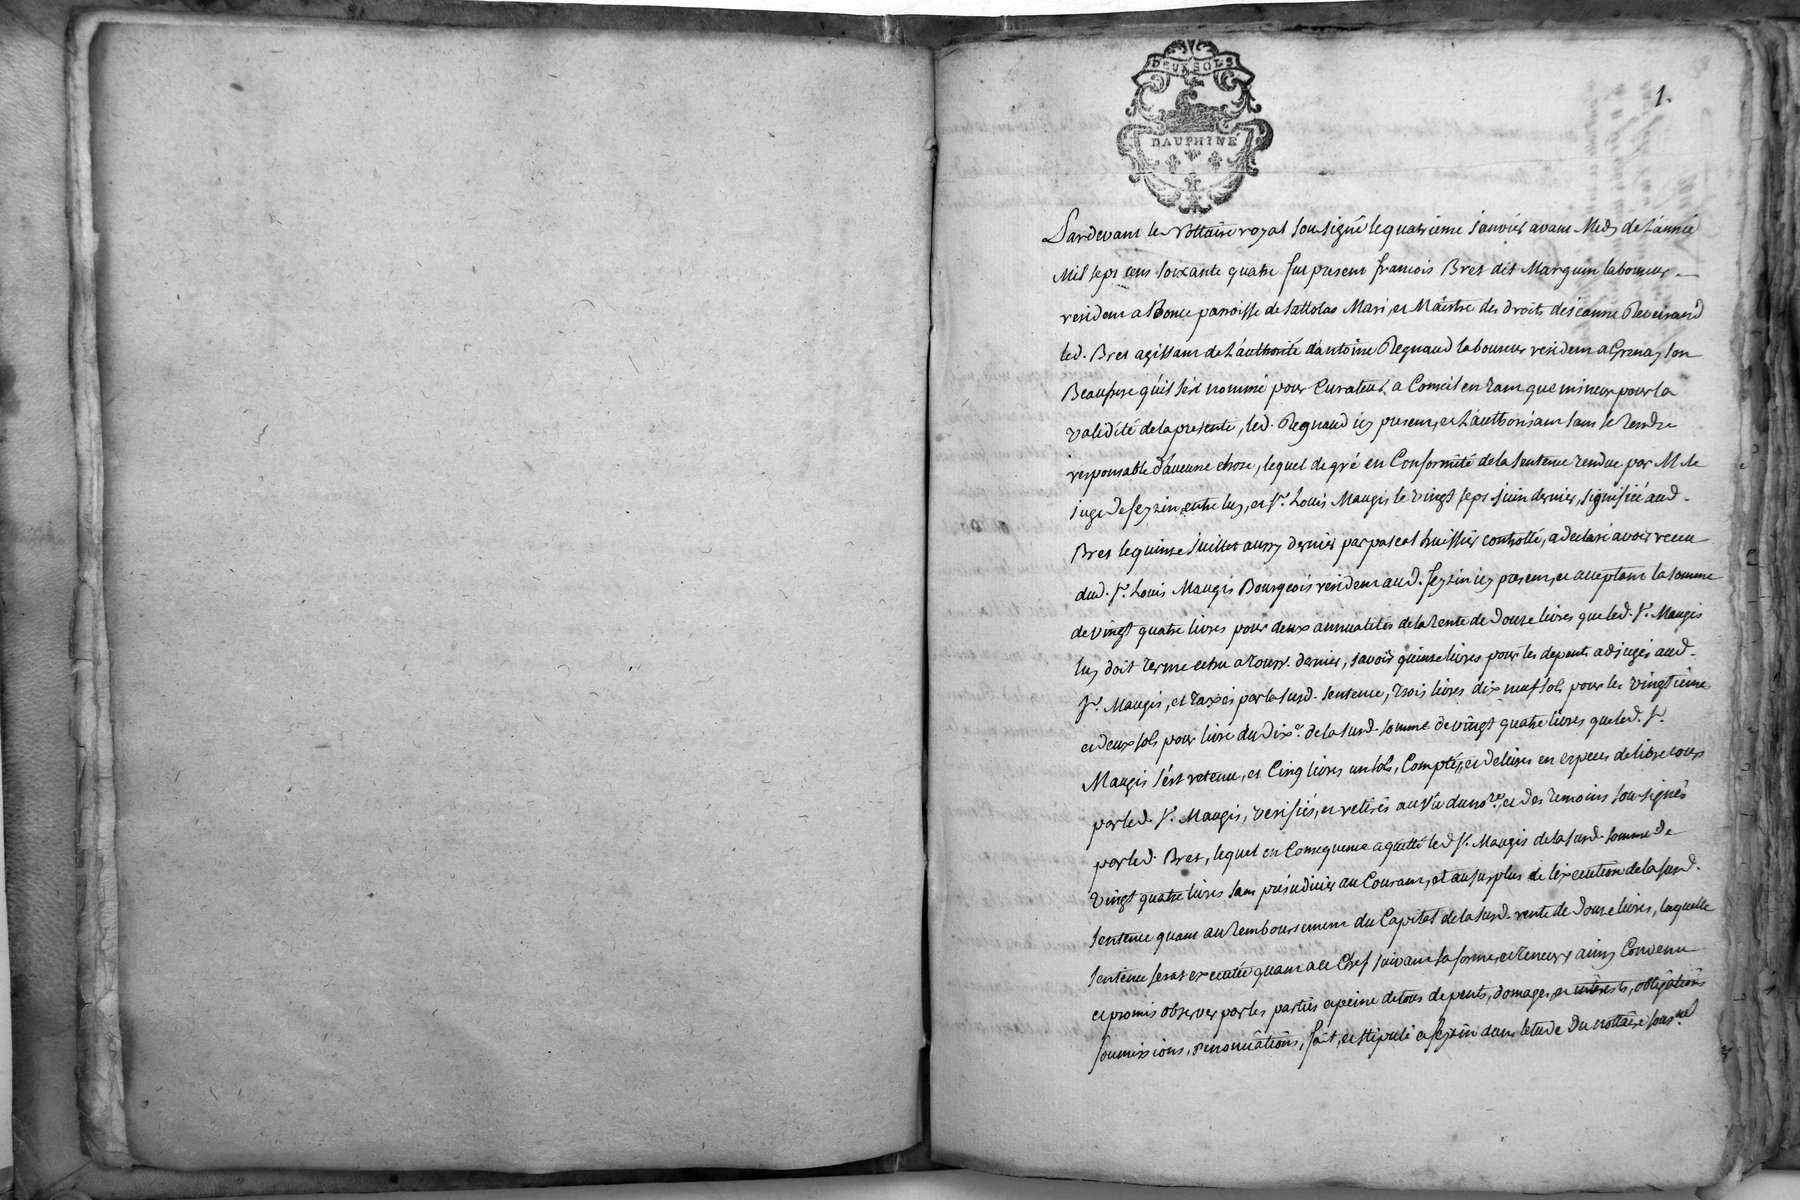 DEUX SOLS
DAUPHINÉ
1.
Pardevant le Nottaire royal sousigné le quatrieme Janvier avant Midy de L'année
Mil sept cens soixante quatre fut present francois Bret dit Marguin laboureur
resident a Bonce parroisse de Sattolas Mari, et Maistre des droits de jeanne Reveirand
led. Bret agissant de L'authorité d'antoine Regnaud laboureur resident a Grenay son
Beaufrere qu'il s'est nommé pour Curateur, a Conseil en tant que mineur pour la
validité de la presente, led. Regnaud icy present, et L'authorisant sans se rendre
responsable d'aucune chose, lequel de gré en Conformité de la sentence rendue par M. le
juge de seyzin entre luy, et Sr. Louis Maugis le vingt sept juin dernier, signifiée aud.
Bret le quinze Juillet aussy dernier par pascal huissier controllé, a declaré avoir receu
dud. Sr. Louis Maugis Bourgeois resident aud. seyzin icy present, et acceptant la somme
de vingt quatre livres pour deux annualités de la rente de Douze livres que led. Sr. Maugis
luy doit terme echu a touss. dernier, savoir quinze livres pour les depents adjugés aud.
Sr. Maugis, et taxés par la susd. sentence, trois livres dix neuf sols pour les vingtième
et deux sols pour livre du dixe. de la susd. somme de vingt quatre livres que led. Sr.
Maugis s'est retenu, et Cinq livres un sols, Comptés, et delivrés en especes de libre cours
par led. Sr. Maugis, verifiés, et retirés au Vû du nore. et des temoins sousignés
par led. Bret, lequel en Consequence a quitté led Sr. Maugis de la susd. somme de
vingt quatre livres sans préjudicier au Courant, et au surplus de l'execution de la susd.
sentence quant au remboursement du Capital de la susd. rente de Douze livres, laquelle
sentence seras executée quant a ce Chef suivant sa forme, et teneur, ainsy Convenu
et promis observer par les parties a peine de tous depents, domages, et interests, obligations
soumissions, renonciations, fait, et stipulé a seyzin dans letude du nottaire sousné.